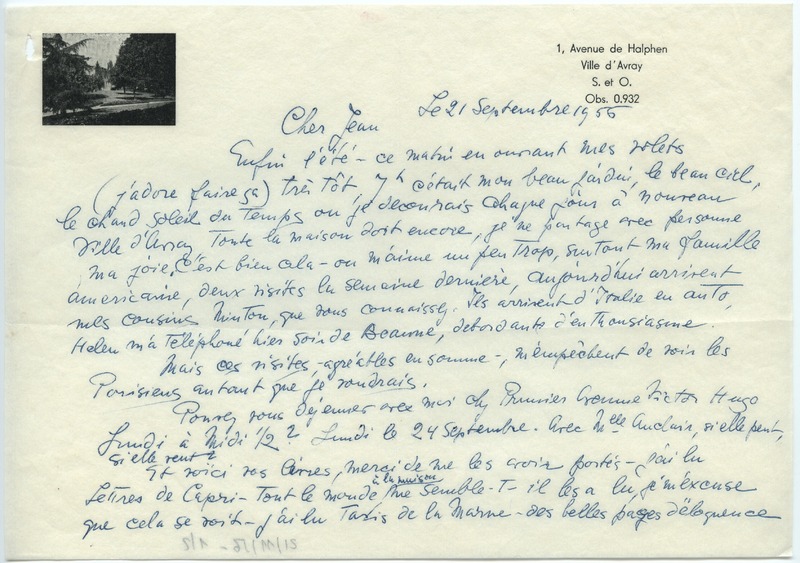 1, Avenue de Halphen
Ville d'Avray
S. et O.
Obs. 0.932
Le 21 Septembre 1956
Cher Jean
Enfin l'été - ce matin en ouvrant mes volets
(j'adore faire ça) très tôt 7h c'était mon beau jardin, le beau ciel,
le chaud soleil du temps où je decouvrais chaque jour à nouveau
Ville d'Avray. Toute la maison dort encore, je ne partage avec personne
ma joie. C'est bien cela - on m'aime un peu trop, surtout ma famille
américaine, deux visites la semaine dernière, aujourd'hui arrivent
mes cousins Minton, que vous connaissez. Ils arrivent d'Italie en auto,
Helen m'a téléphoné hier soir de Beaune, debordante d'enthousiasme.
Mais ces visites, - agréables en somme -, m'empêchent de voir les
Parisiens autant que je voudrais.
Pouvez vous déjeuner avec moi chez Prunier Avenue Victor Hugo
Lundi à Midi 1/2? Lundi le 24 Septembre - Avec Mlle Anclair, si elle peut,
si elle veut?
Et voici vos livres, merci de me les avoir portés - j'ai lu
Lettres de Capri - Tout le monde à la maison me semble-t-il les a lu, je m'excuse
que cela se voit - j'ai lu Taxis de la Marne - des belles pages d'éloquence